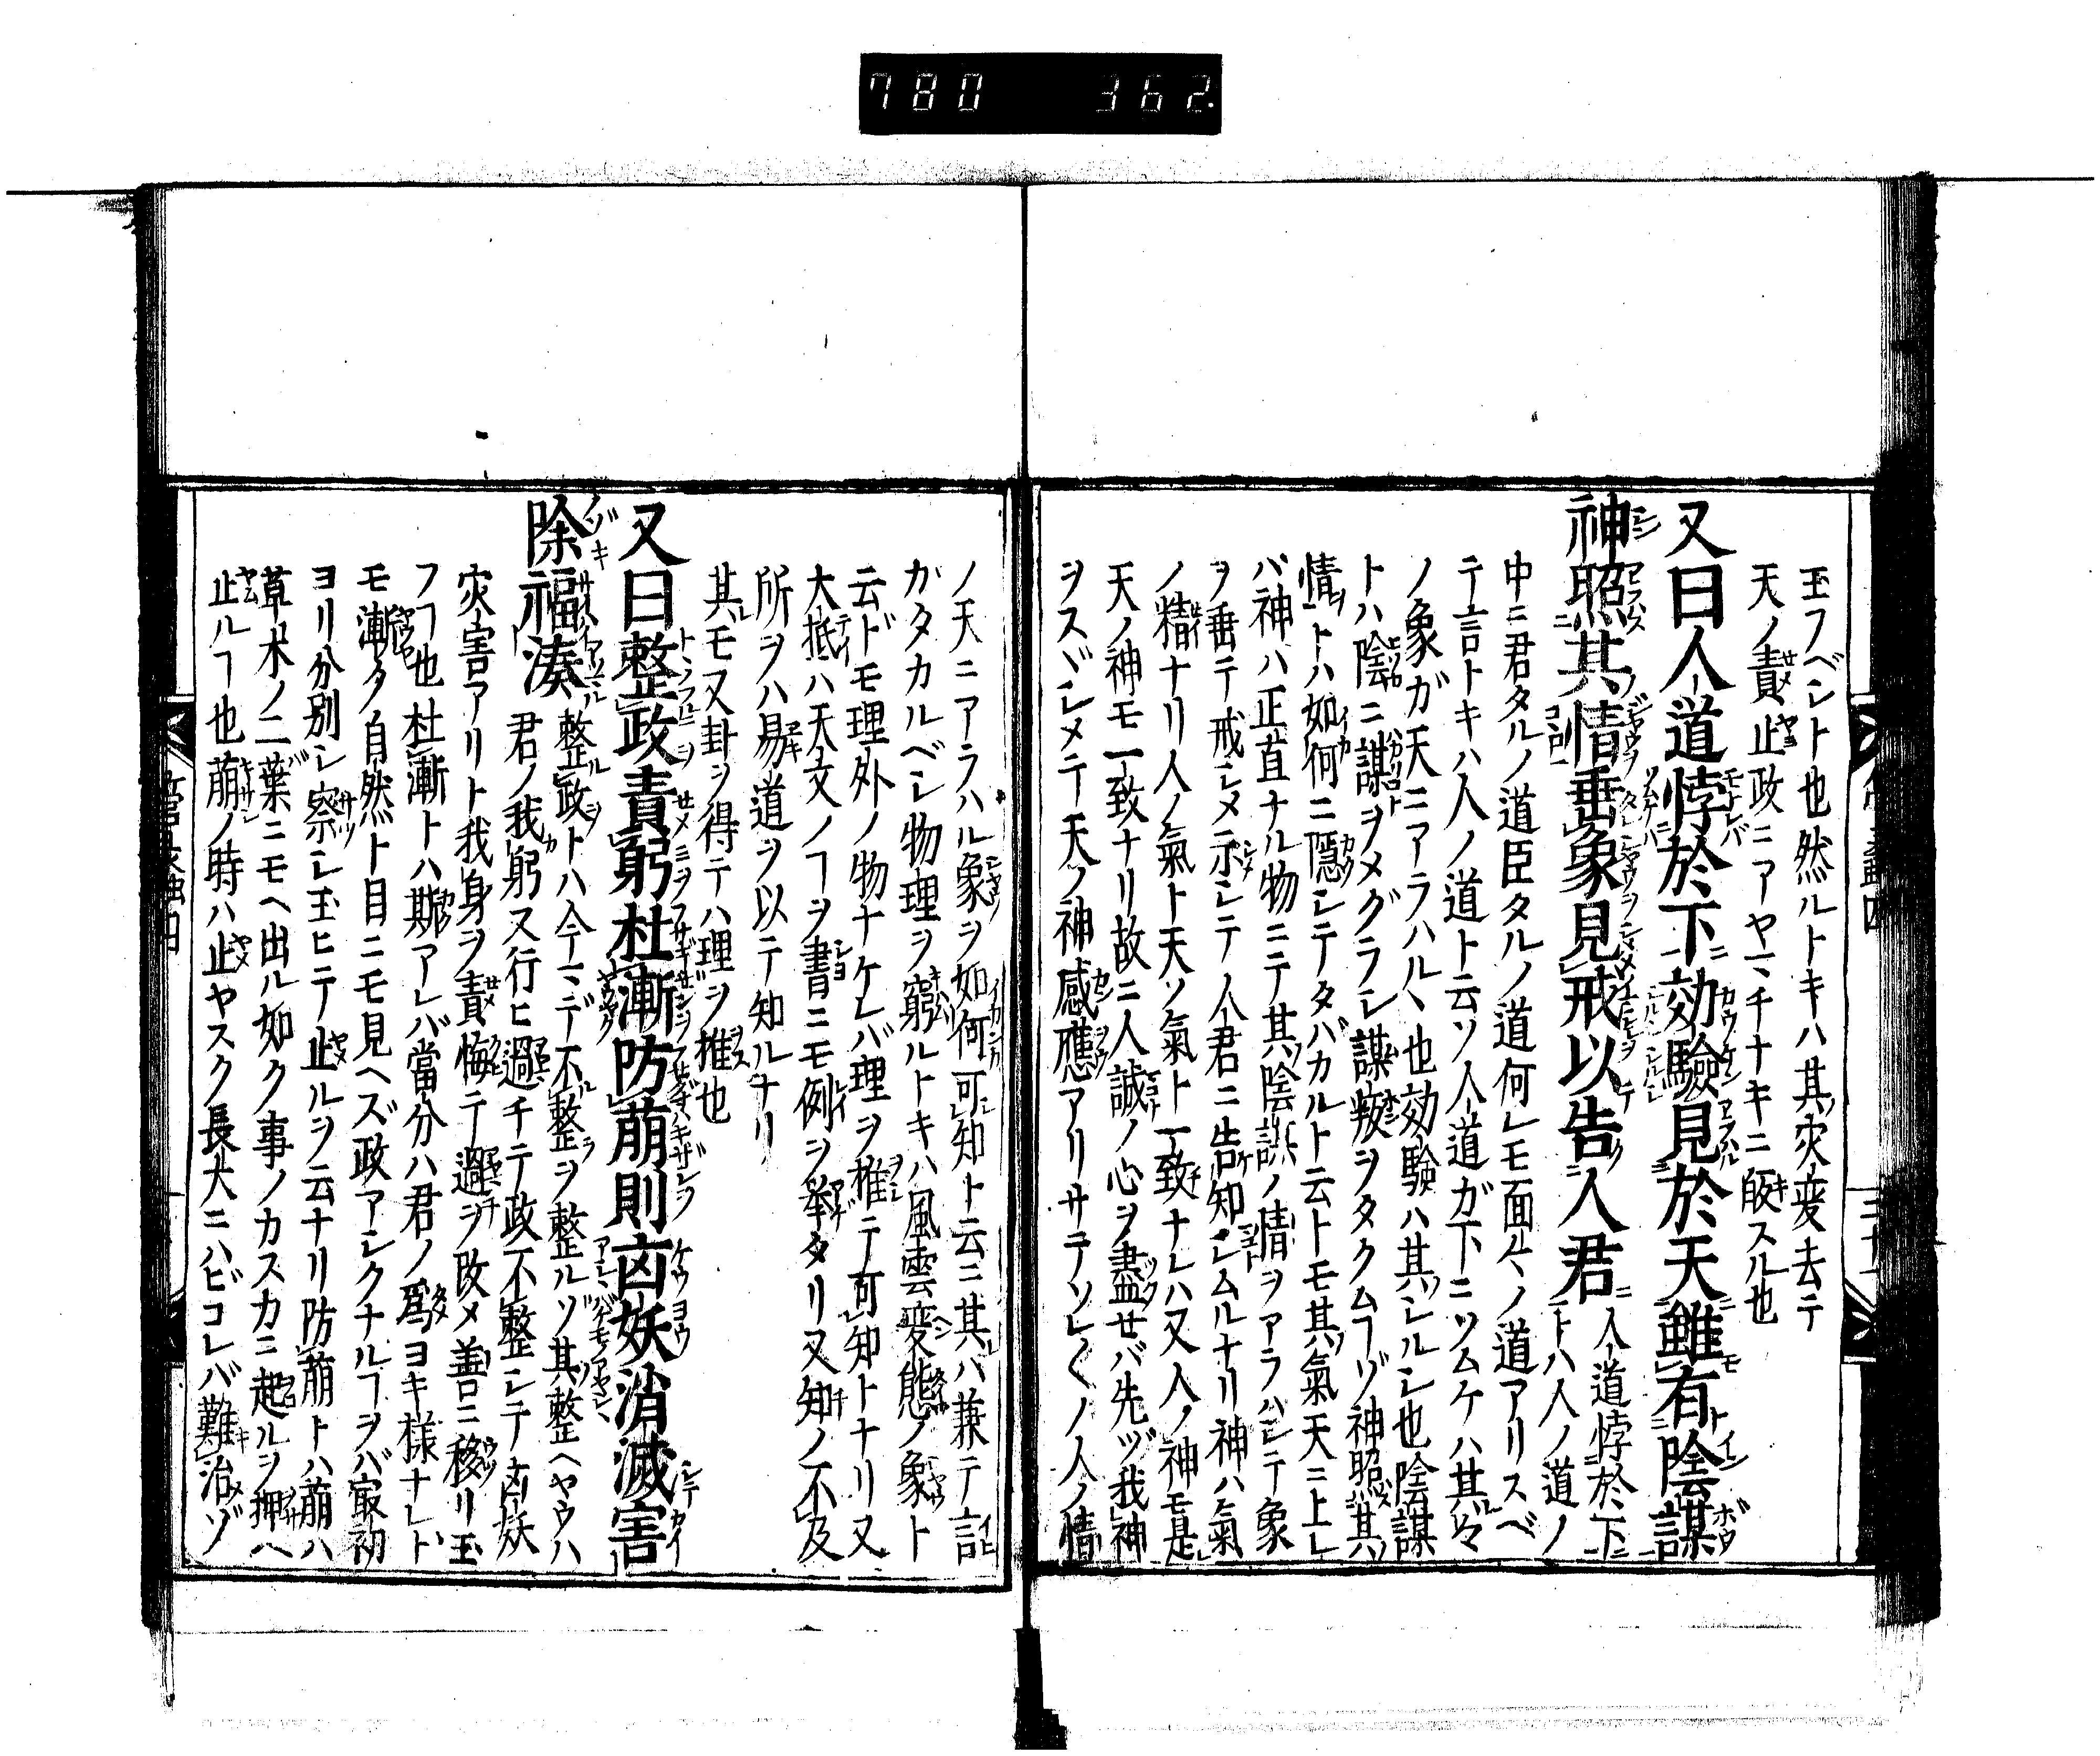 780 362
玉フベシト也然ルトキハ其災変去テ
天ノ責止政ニアヤマチナキニ皈スル也
又曰人道悖於下効驗見於天雖有陰謀
神照其情垂象見戒以告人君 人道悖於下ニトハ人ノ道ノ
中ニ君タルノ道臣タルノ道何レモ面々ノ道アリスベ
テ言トキハ人ノ道ト云ソ人道ガ下ニソムケハ其々
ノ象ガ天ニアラハルヽ也効驗ハ其シルシ也陰謀
トハ陰ニ謀ヲメグラシ謀叛ヲタクムヿゾ神照其
情トハ如何ニ隱シテタバカルト云トモ其氣天ニ上レ
バ神ハ正直ナル物ニテ其陰謀ノ情ヲアラハシテ象
ヲ垂テ戒シメ示シテ人君ニ告知シムルナリ神ハ氣
ノ精ナリ人ノ氣ト天ソ氣ト一致ナレハ又人ノ神モ是
天ノ神モ一致ナリ故ニ人誠ノ心ヲ盡せバ先ヅ我神
ヲスヾシメテ天ノ神感應アリサテソレ〱ノ人ノ情
ノ天ニアラハル象ヲ如何可知ト云ニ其ハ兼テ記
ガタカルベシ物理ヲ窮ルトキハ風雲変態ノ象ト
云ドモ理外ノ物ナケレバ理ヲ推テ可知トナリ又
大抵ハ天文ノヿヲ書ニモ例ヲ挙タリ又知ノ不及
所ヲハ易道ヲ以テ知ルナリ
其モ又卦ヲ得テハ理ヲ推也
又曰整政責躬杜漸防萠則凶妖消滅害
除福湊 整政トハ今マデ不整ヲ整ルゾ其整ヘヤウハ
君ノ我躬又行ヒ過チテ政不整シテ凶妖
災害アリト我身ヲ責悔テ過ヲ改メ善ニ移リ玉
フヿ也杜漸トハ斯アレバ當分ハ君ノ爲ヨキ様ナレド
モ漸々自然ト目ニモ見ヘズ政アシクナルヿヲバ最初
ヨリ分別シ察シ玉ヒテ止ルヲ云ナリ防萠トハ萠ハ
草木ノ二葉ニモヘ出ル如ク事ノカスカニ起ルヲ押ヘ
止ルヿ也萠ノ時ハ止ヤスク長大ニハビコレバ難治ゾ